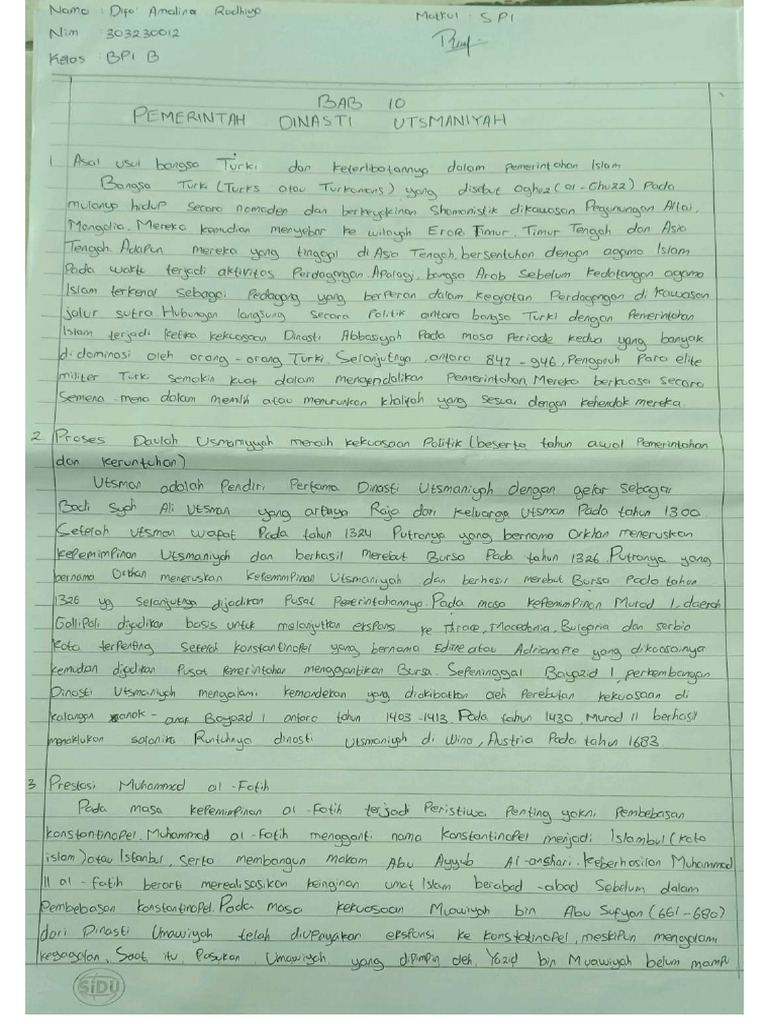 Nama : Difa Amalina Radhiya
Matkul : SPI
Nim : 303230012
Kelas : BPI B
BAB 10
PEMERINTAH DINASTI UTSMANIYAH
1. Asal usul bangsa Turki dan keterlibatannya dalam pemerintahan Islam
Bangsa Turki (Turks atau Turkomans) yang disebut Oghuz (al-Ghuzz) Pada
mulanya hidup secara nomaden dan berkeyakinan Shamanistik dikawasan Pegunungan Altai,
Mongolia. Mereka kamudian menyebar ke wilayah Eropa Timur, Timur Tengah dan Asia
Tengah. Adapun mereka yang tinggal di Asia Tengah, bersentuhan dengan agama Islam
Pada waktu terjadi aktivitas Perdagangan. Apalagi, bangsa Arab Sebelum Kedatangan agama
Islam terkenal sebagai Pedagang yang berperan dalam kegiatan Perdagangan di kawasan
jalur sutra Hubungan langsung secara Politik antara bangsa Turki dengan Pemerintahan
Islam terjadi ketika kekuasaan Dinasti Abbasiyah Pada masa Periode kedua yang banyak
di dominasi oleh orang-orang Turki. Selanjutnya, antara 847-946, Pengaruh Para elite
militer Turk semakin kuat dalam mengendalikan Pemerintahan. Mereka berkuasa secara
Semena-mena dalam memilih atau menurunkan khalifah yang sesuai dengan kehendak mereka.
2. Proses Daulah Usmaniyyah meraih kekuasaan Politik (beserta tahun awal Pemerintahan
dan keruntuhan)
Utsman adalah Pendiri Pertama Dinasti Utsmaniyah dengan gelar sebagai
Badi Syah Ali Utsman yang artinya Raja dari keluarga Utsman Pada tahun 1300.
Setelah Utsman wafat Pada tahun 1324 Putranya yang bernama Orkhan meneruskan
kepemimpinan Utsmaniyah dan berhasil merebut Bursa Pada tahun 1326. Putranya yang
bernama Orkhan meneruskan kepemimpinan Utsmaniyah dan berhasil merebut Bursa Pada tahun
1326 yg selanjutnya dijadikan Pusat Pemerintahannya. Pada masa kepemimpinan Murad I, daerah
Gallipoli dijadikan basis untuk melanjutkan ekspansi ke thrace, Macedonia, Bulgaria dan serbia
Kota terpenting setelah Konstantinopel yang bernama Edirne atau Adrianopre yang dikuasainya
kemudian dijadikan Pusat Pemerintahan menggantikan Bursa. Sepeninggal Bayazid I, perkembangan
Dinasti Utsmaniyah mengalami kemandekan yang diakibatkan oleh Perebutan kekuasaan di
kalangan anak-anak Bayazid I antara tahun 1403-1413. Pada tahun 1430, Murad II berhasil
menaklukan salanika Runtuhnya dinasti Utsmaniyah di Wina, Austria Pada tahun 1683.
3. Prestasi Muhammad al-Fatih
Pada masa kepemimpinan al-Fatih terjadi Peristiwa Penting yakni, Pembebasan
Konstantinopel. Muhammad al-Fatih mengganti nama Konstantinopel menjadi Islambul (kota
islam) atau Istanbul, Serta membangun makam Abu Ayyub Al-anshari. Keberhasilan Muhammad
II al-fatih berarti merealisasikan keinginan umat Islam berabad-abad Sebelum dalam
Pembebasan Konstantinopel. Pada masa kekuasaan Muawiyah bin Abu Sufyan (661-680)
dari Dinasti Umawiyah telah diupayakan ekspansi ke konstatinopel, meskipun mengalami
kegagalan, Saat itu, Pasukan Umawiyah yang dipimpin oleh, Yazid bin Muawiyah belum mampu
SIDU